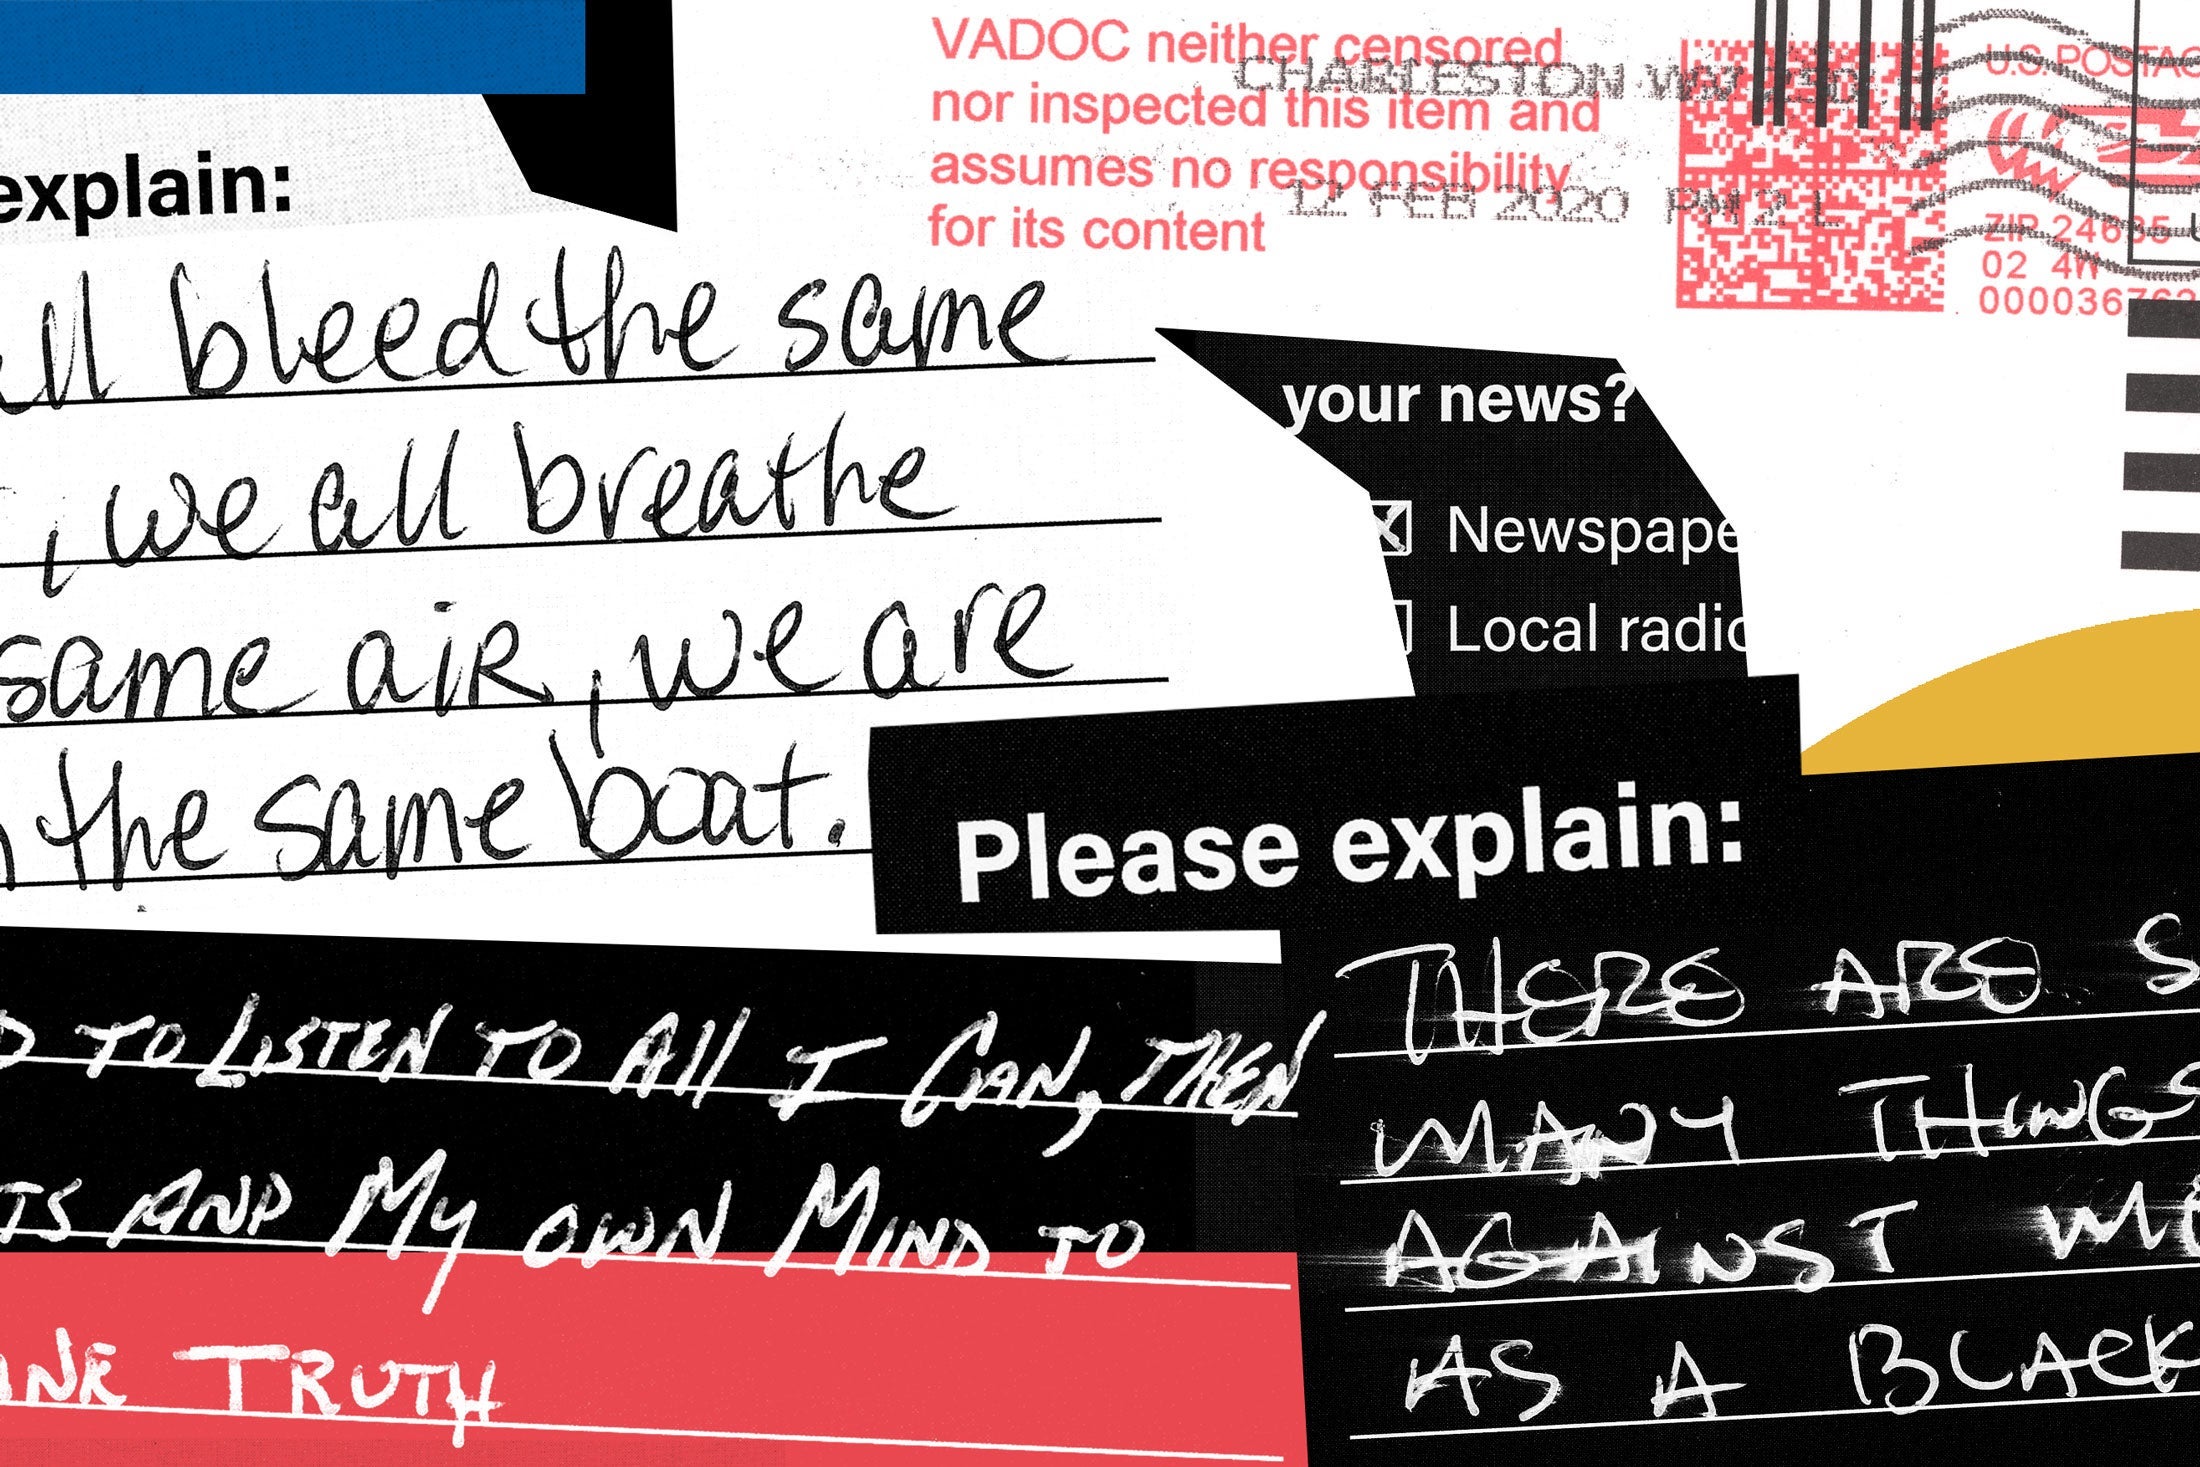 VADOC neither censored
nor inspected this item and
assumes no responsibility
for its content
CHARLESTON WV
12 FEB 2020 PM 2 L
U.S. POSTAG
ZIP 24635
02 4W
explain:
all bleed the same
, we all breathe
same aiR, we are
the same boat.
your news?
Newspape
Local radio
Please explain:
TO LISTEN TO All I CAN, THEN
AND My OWN MIND TO
TRUTH
THERE ARE S
MANY THINGS
AGAINST ME
AS A BLACK